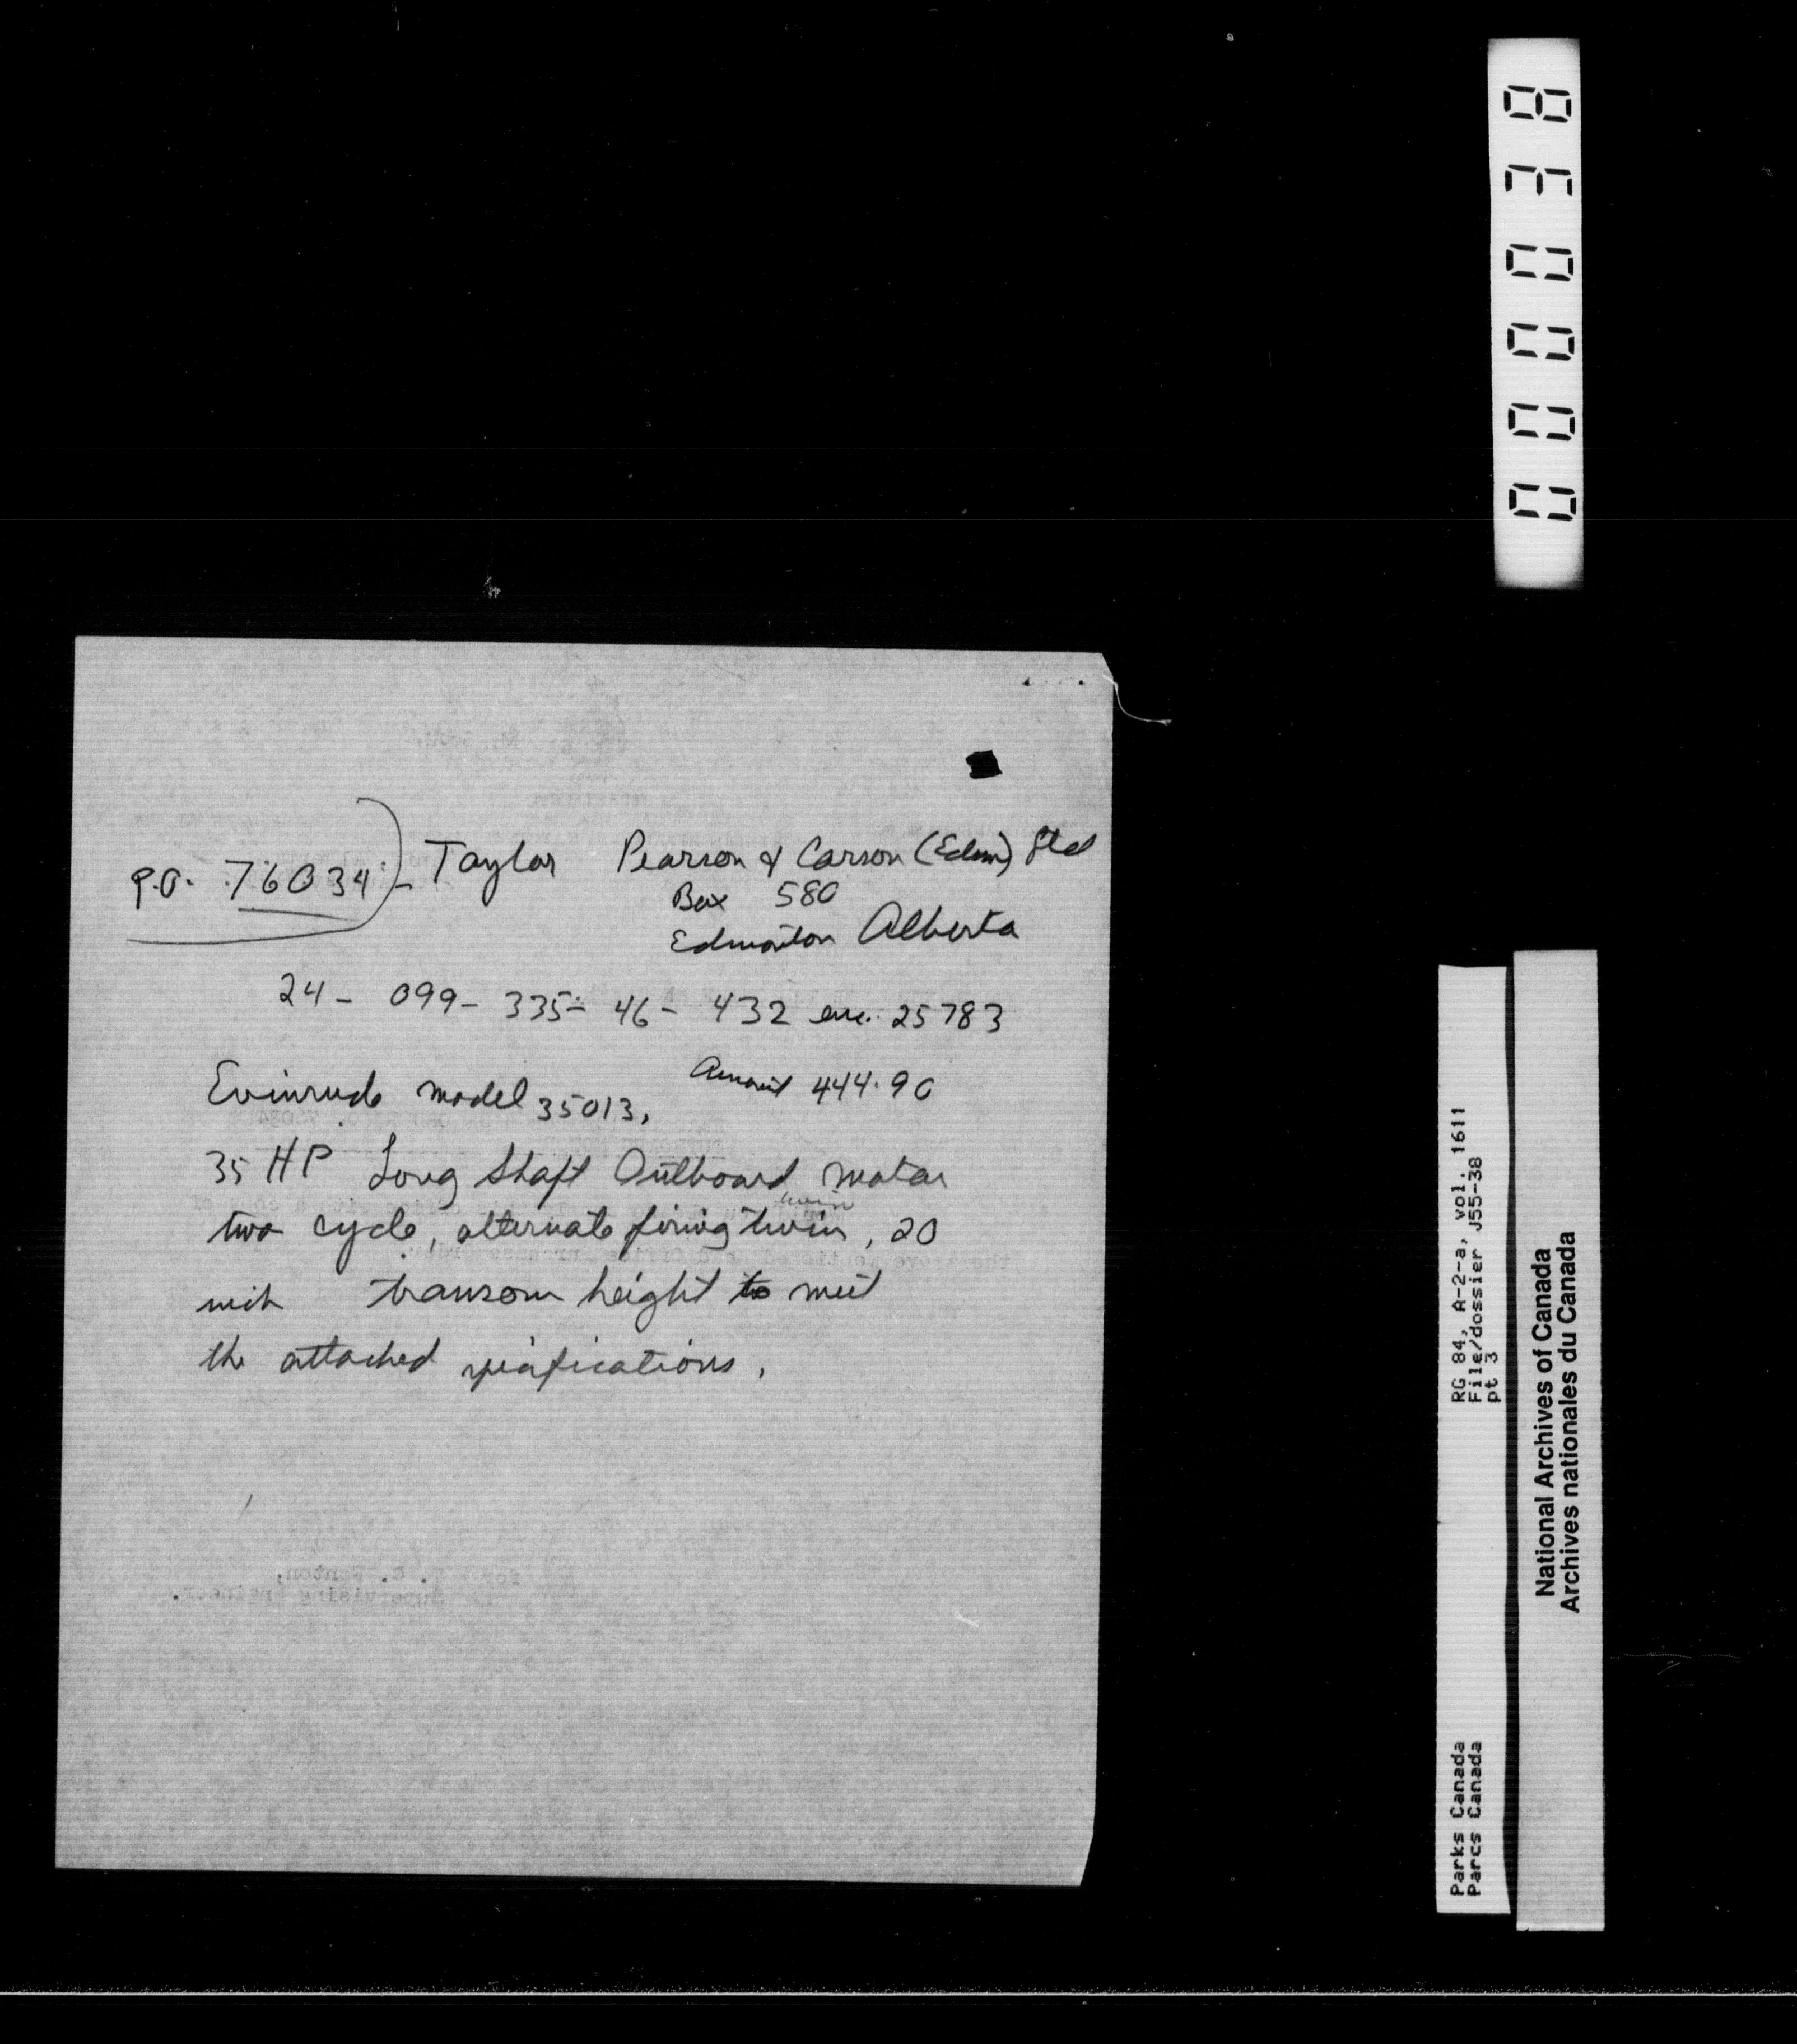 P.O. 76034 - Taylor Pearson & Carson (Edm) Ltd
Box 580
Edmonton Alberta
24 - 099 - 335 - 46 - 432 enc. 25783
Amount 444.90
Evinrude model 35013,
35 HP Long Shaft Outboard Motor
twin
two cycle, alternate firing twin, 20
inch transom height to meet
the attached specifications.
for T. C. Fenton,
Supervising Engineer.
000038
RG 84, A-2-a, vol. 1611
File/dossier J55-38
pt 3
Parks Canada
Parcs Canada
National Archives of Canada
Archives nationales du Canada